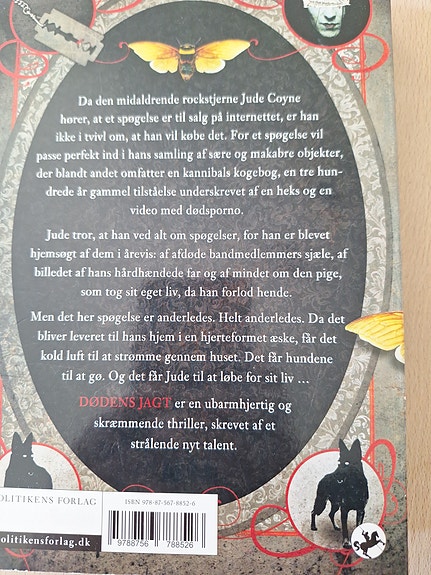 Da den midaldrende rockstjerne Jude Coyne
hører, at et spøgelse er til salg på internettet, er han
ikke i tvivl om, at han vil købe det. For et spøgelse vil
passe perfekt ind i hans samling af sære og makabre objekter,
der blandt andet omfatter en kannibals kogebog, en tre hun-
drede år gammel tilståelse underskrevet af en heks og en
video med dødsporno.
Jude tror, at han ved alt om spøgelser, for han er blevet
hjemsøgt af dem i årevis: af afdøde bandmedlemmers sjæle, af
billedet af hans hårdhændede far og af mindet om den pige,
som tog sit eget liv, da han forlod hende.
Men det her spøgelse er anderledes. Helt anderledes. Da det
bliver leveret til hans hjem i en hjerteformet æske, får det
kold luft til at strømme gennem huset. Det får hundene
til at gø. Og det får Jude til at løbe for sit liv ...
DØDENS JAGT er en ubarmhjertig og
skræmmende thriller, skrevet af et
strålende nyt talent.
OLITIKENS FORLAG
ISBN 978-87-567-8852-6
9 788756 788526
olitikensforlag.dk